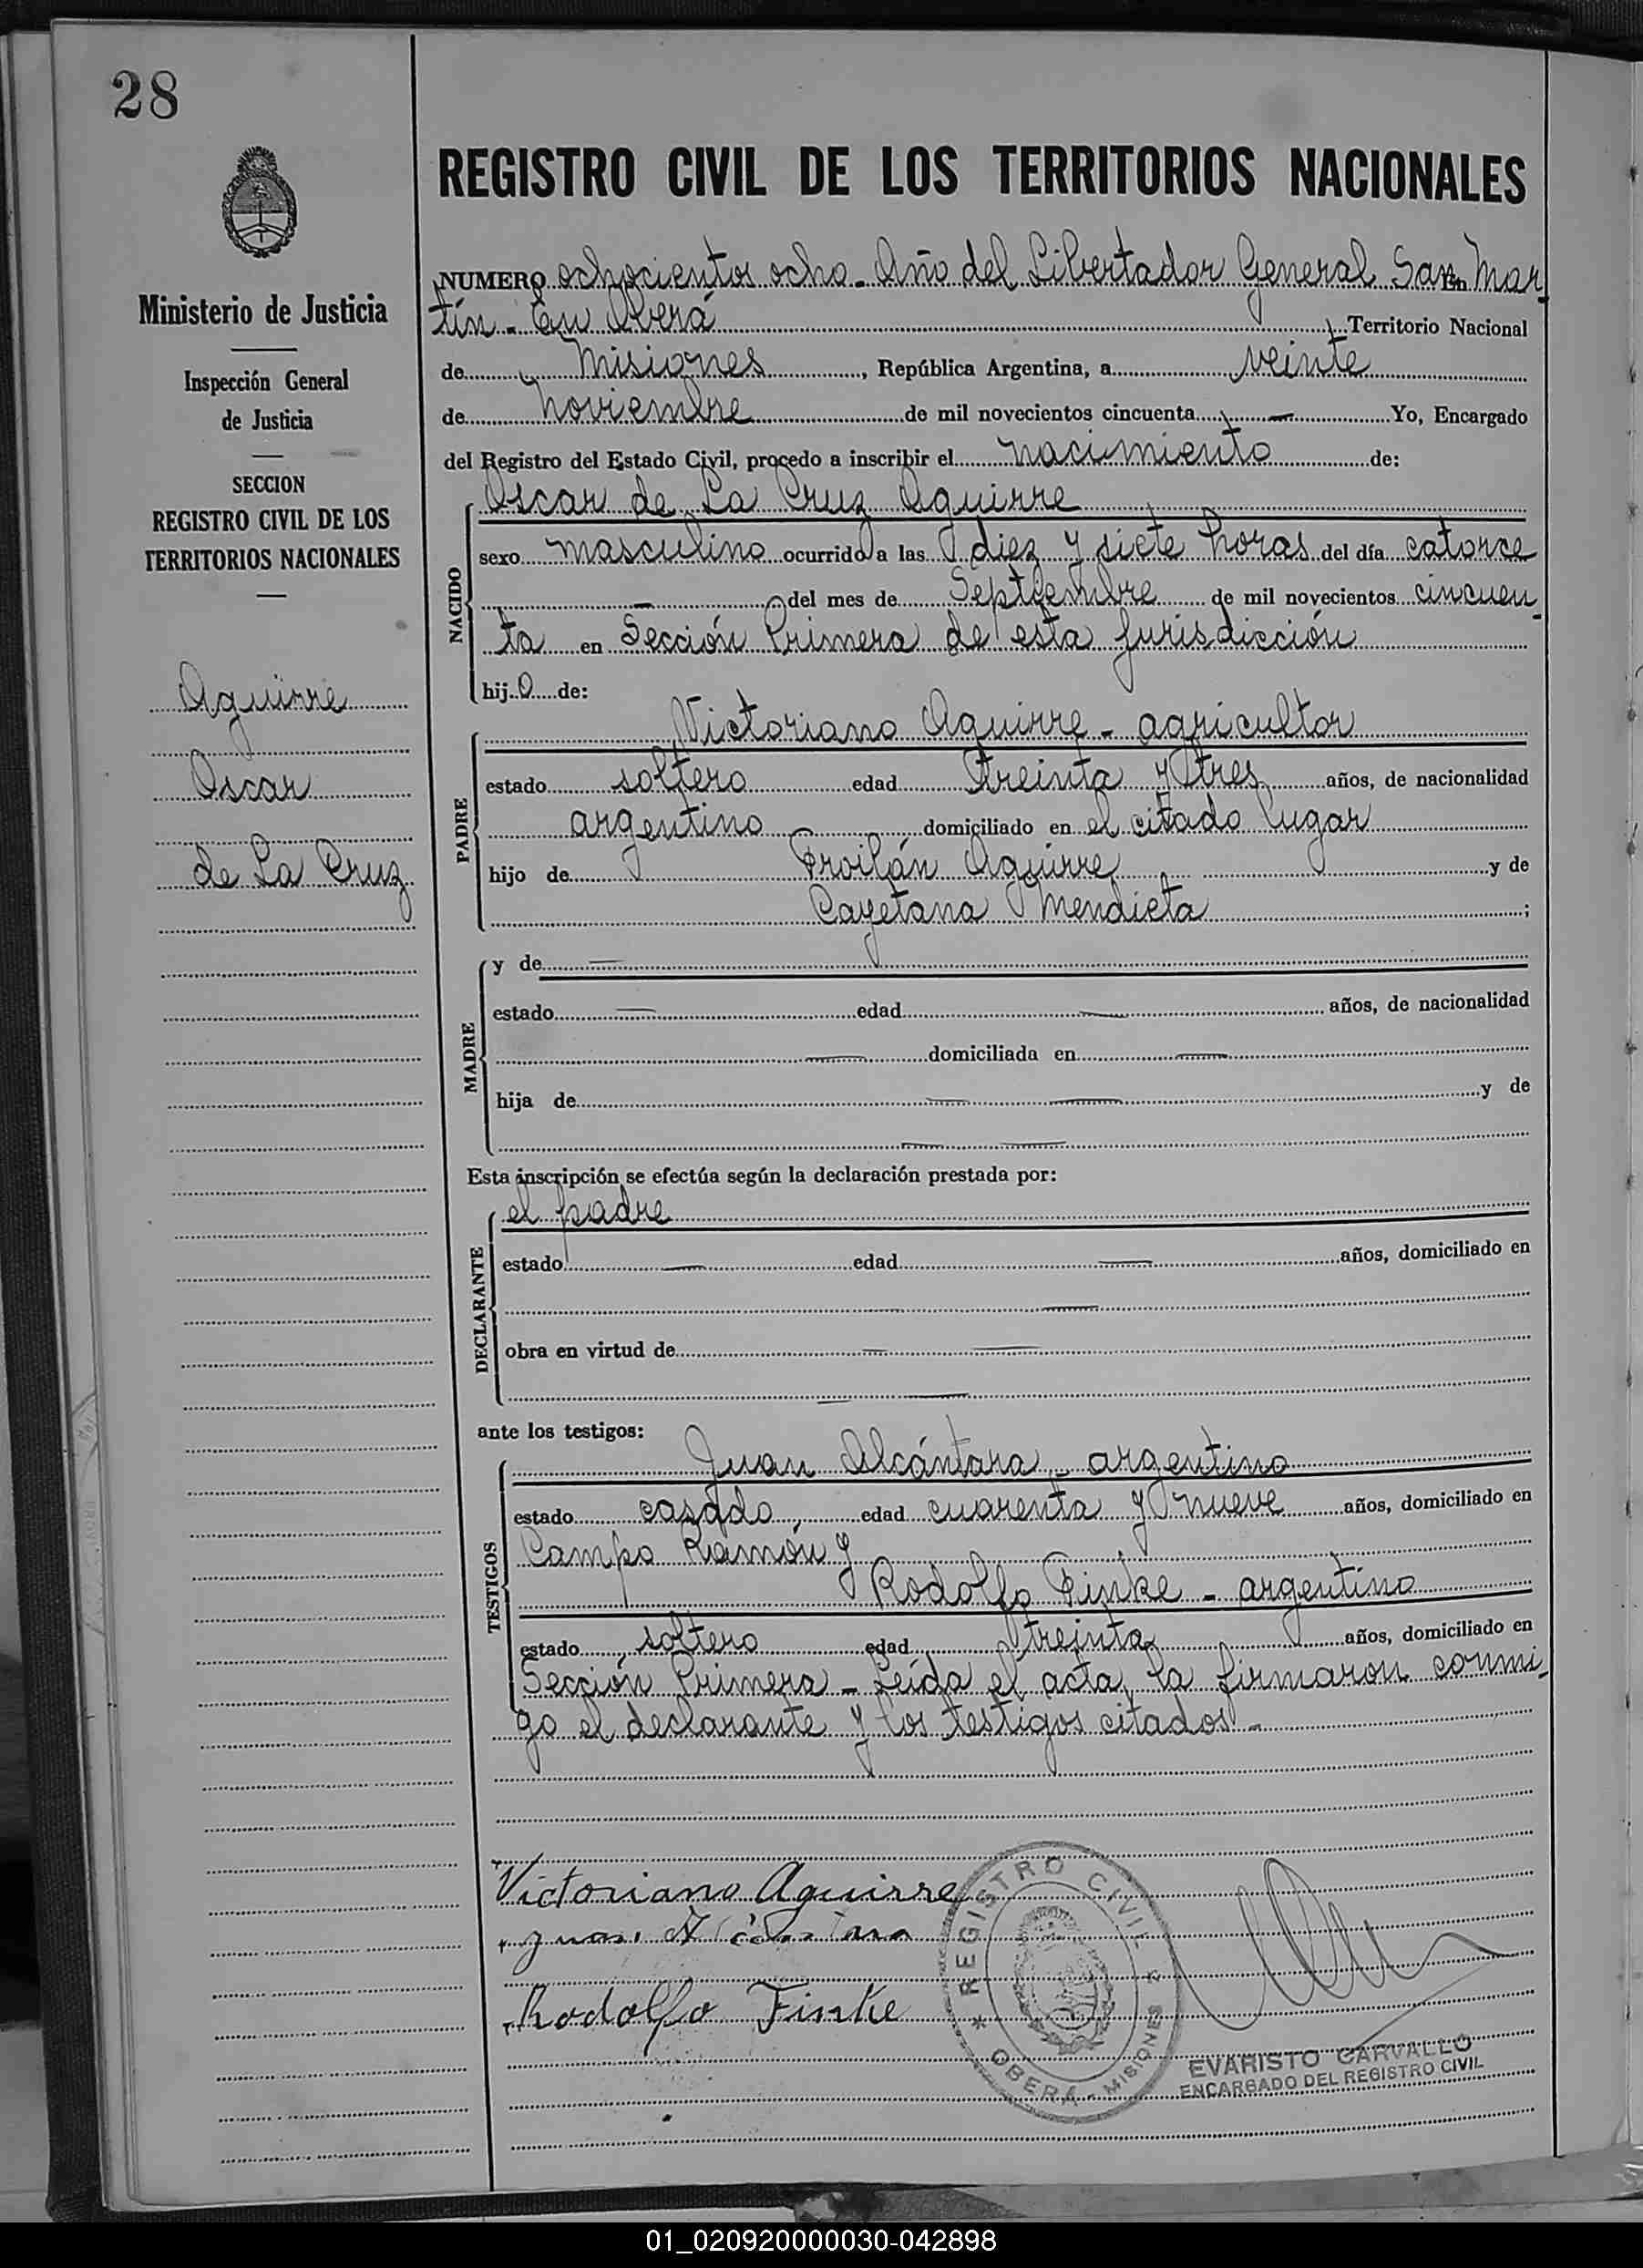 28
Ministerio de Justicia
Inspección General
de Justicia
SECCION
REGISTRO CIVIL DE LOS
TERRITORIOS NACIONALES
Aguirre
Oscar
de La Cruz
REGISTRO CIVIL DE LOS TERRITORIOS NACIONALES
NUMERO ochocientos ocho - Año del Libertador General San Mar-
tín - En Oberá Territorio Nacional
de Misiones, República Argentina, a veinte
de Noviembre de mil novecientos cincuenta Yo, Encargado
del Registro del Estado Civil, procedo a inscribir el nacimiento de:
NACIDO
Oscar de La Cruz Aguirre
sexo masculino ocurrido a las diez y siete horas del día catorce
del mes de Septiembre de mil novecientos cincuen-
ta en Sección Primera de esta jurisdicción
hijo de:
PADRE
Victoriano Aguirre - agricultor
estado soltero edad treinta y tres años, de nacionalidad
argentino domiciliado en el citado lugar
hijo de Froilán Aguirre y de
Cayetana Mendieta;
MADRE
y de
estado edad años, de nacionalidad
domiciliada en
hija de y de
Esta inscripción se efectúa según la declaración prestada por:
DECLARANTE
el padre
estado edad años, domiciliado en
obra en virtud de
ante los testigos:
TESTIGOS
Juan Alcántara - argentino
estado casado, edad cuarenta y nueve años, domiciliado en
Campo Ramón y
Rodolfo Finke - argentino
estado soltero edad treinta años, domiciliado en
Sección Primera - Leída el acta, la firmaron conmi-
go el declarante y los testigos citados -
Victoriano Aguirre
Juan Alcantara
Rodolfo Finke
REGISTRO CIVIL
* OBERÁ - MISIONES *
EVARISTO CARVALLO
ENCARGADO DEL REGISTRO CIVIL
01_020920000030-042898